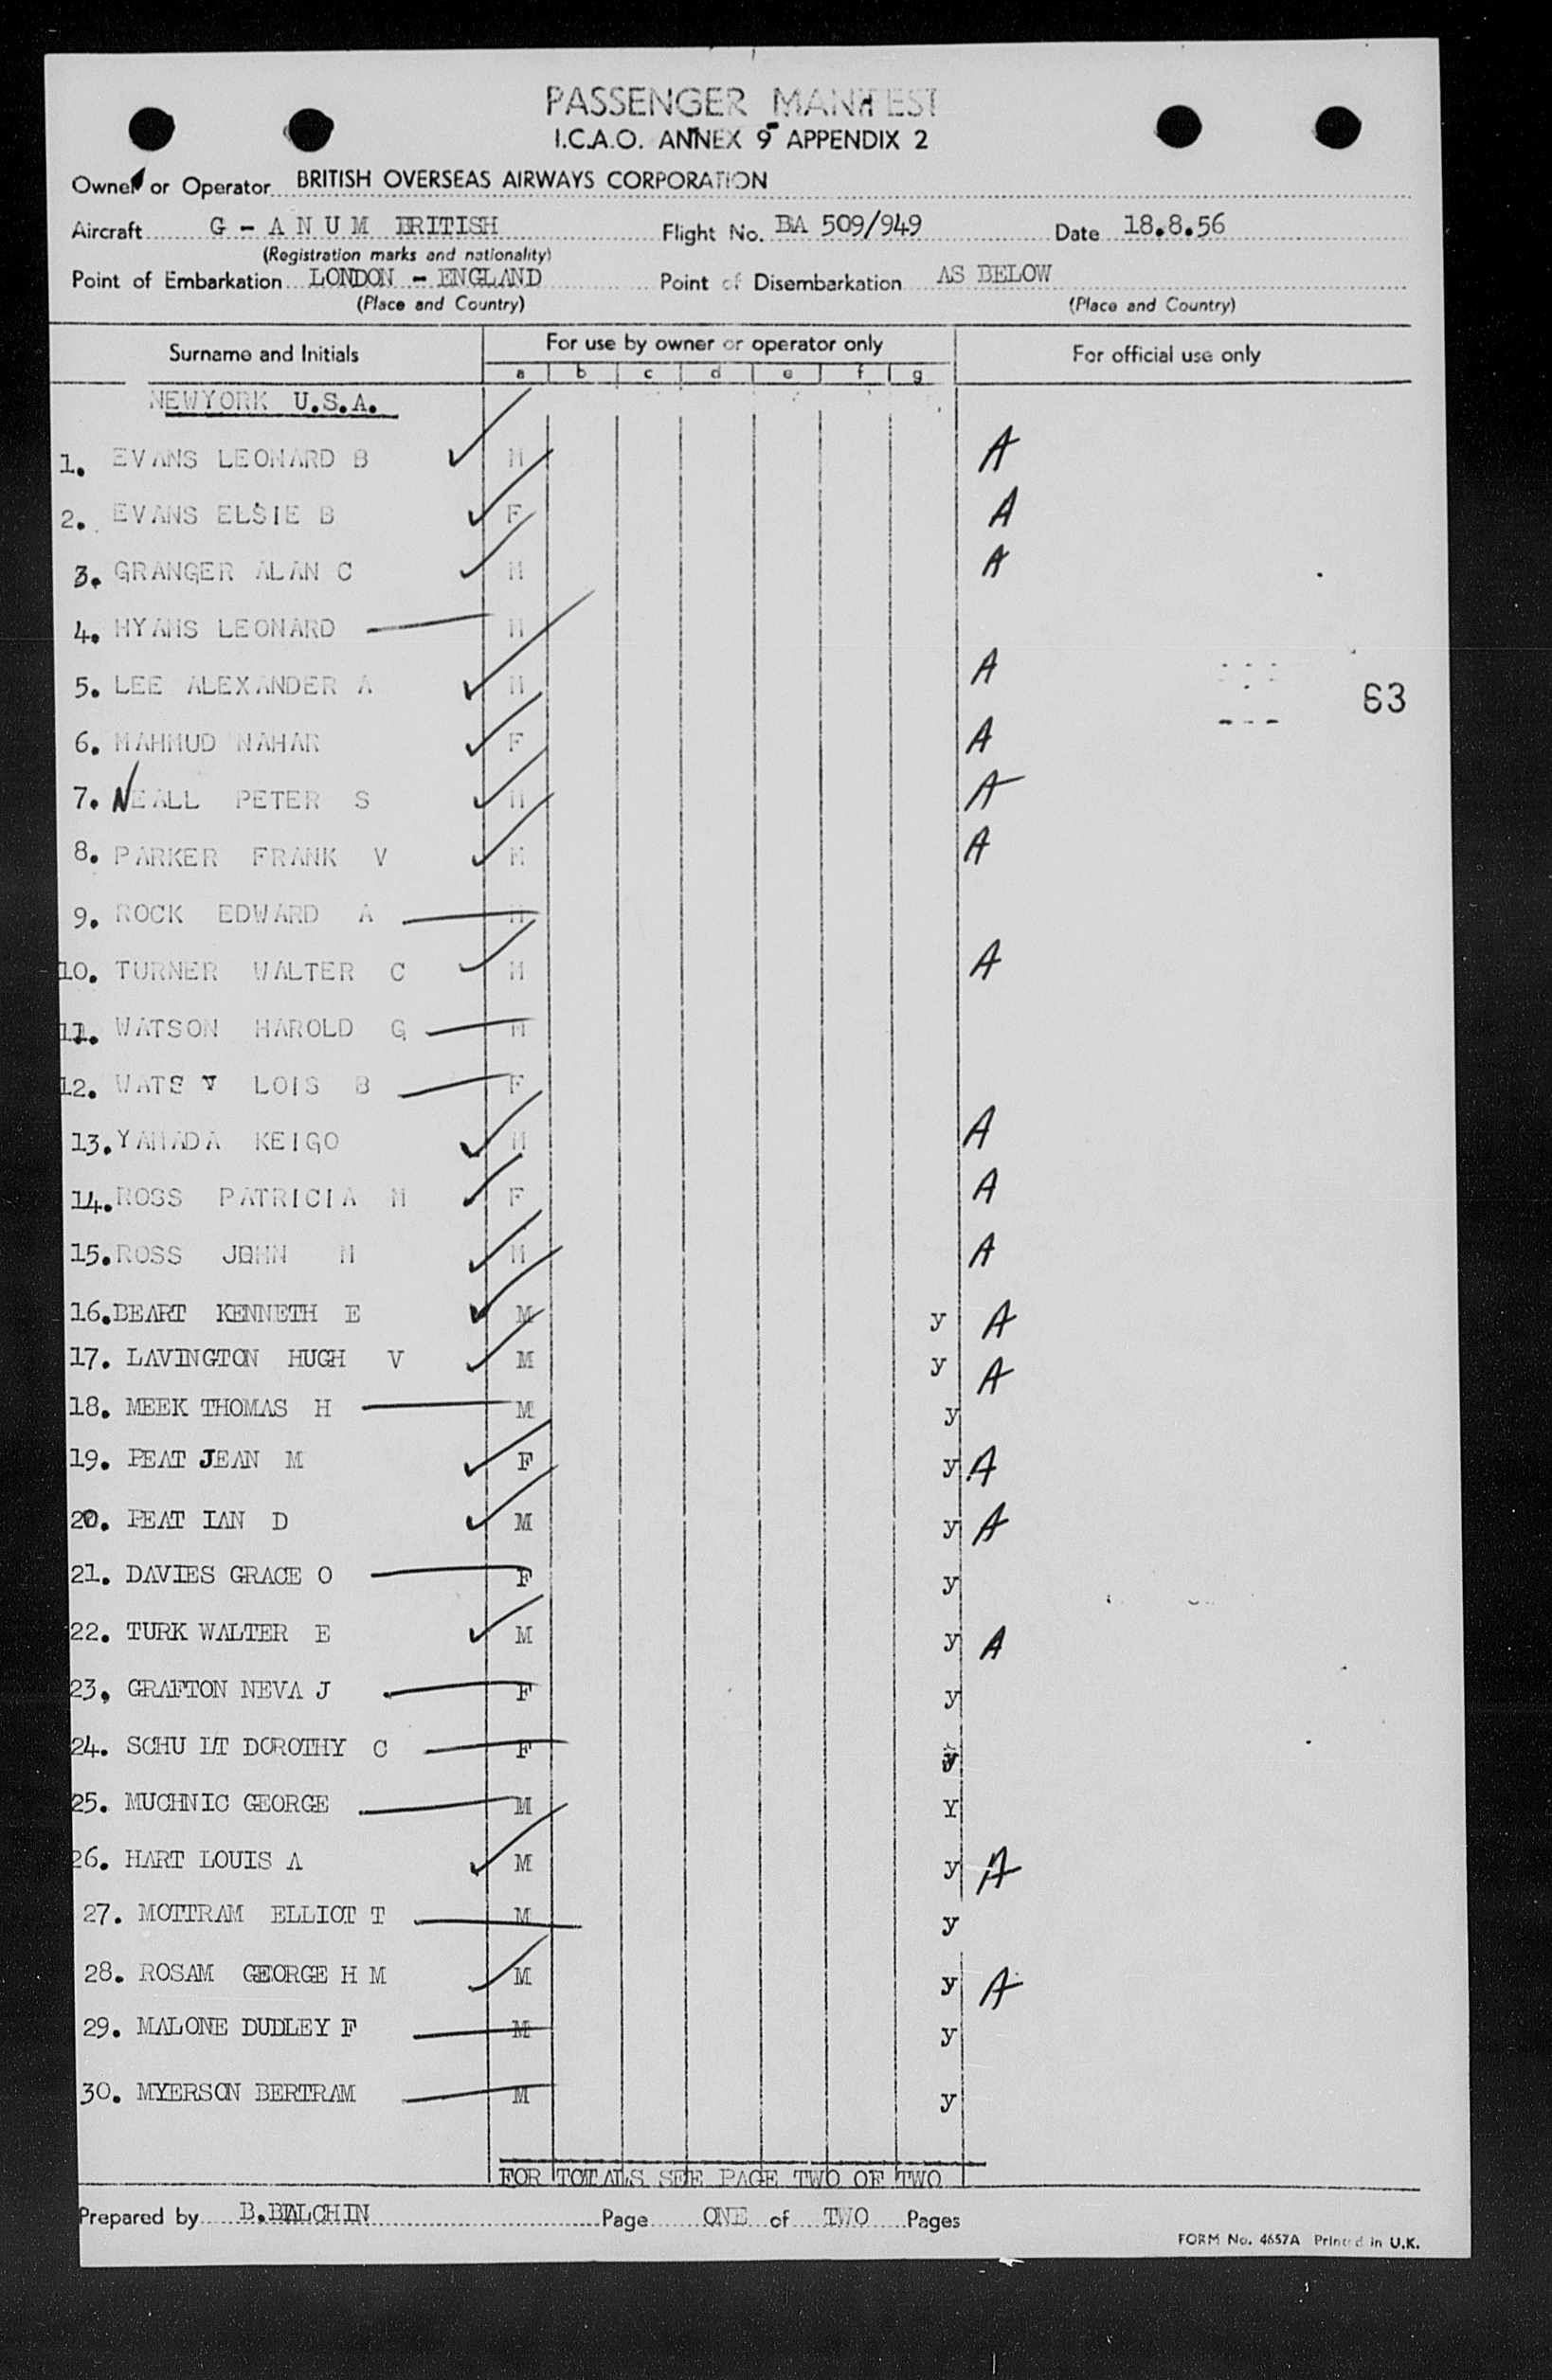 PASSENGER MANIFEST
I.C.A.O. ANNEX 9 APPENDIX 2
Owner or Operator BRITISH OVERSEAS AIRWAYS CORPORATION
Aircraft G - A N U M BRITISH Flight No. BA 509/949 Date 18.8.56
(Registration marks and nationality)
Point of Embarkation LONDON - ENGLAND Point of Disembarkation AS BELOW
(Place and Country) (Place and Country)
Surname and Initials For use by owner or operator only For official use only
a b c d e f g
NEWYORK U.S.A.
1. EVANS LEONARD B M A
2. EVANS ELSIE B F A
3. GRANGER ALAN C M A
4. HYAMS LEONARD M
5. LEE ALEXANDER A M A
63
6. MAHMUD NAHAR F A
7. NEALL PETER S M A
8. PARKER FRANK V M A
9. ROCK EDWARD A M
10. TURNER WALTER C M A
11. WATSON HAROLD G M
12. LOIS B F
13. YAMADA KEIGO M A
14. ROSS PATRICIA M F A
15. ROSS JOHN M A
16. BEART KENNETH E M y A
17. LAVINGTON HUGH V M y A
18. MEEK THOMAS H M y
19. PEAT JEAN M F y A
20. PEAT IAN D M y A
21. DAVIES GRACE O F y
22. TURK WALTER E M y A
23. GRAFTON NEVA J F y
24. SCHU LT DOROTHY C F y
25. MUCHNIC GEORGE M Y
26. HART LOUIS A M y A
27. MOTTRAM ELLIOT T M y
28. ROSAM GEORGE H M M y A
29. MALONE DUDLEY F M y
30. MYERSON BERTRAM M y
FOR TOTALS SEE PAGE TWO OF TWO
Prepared by B.BALCHIN Page ONE of TWO Pages
FORM No. 4657A Printed in U.K.